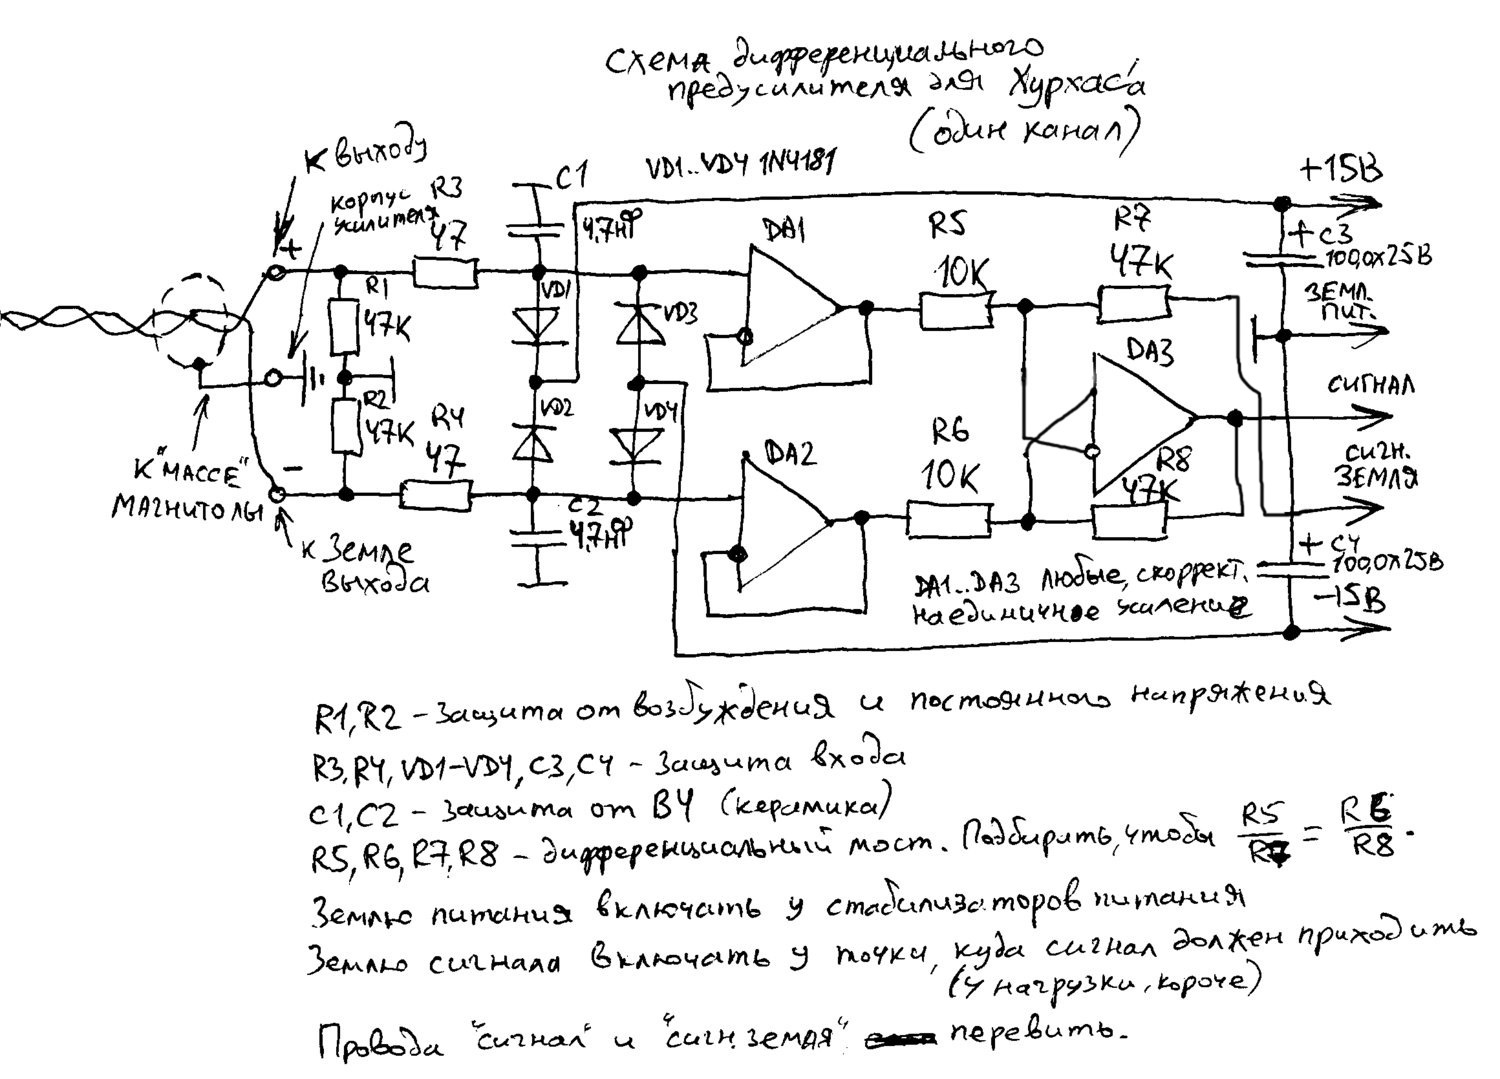 Схема дифференциального
предусилителя для Хурхас'а
(один канал)
К выходу
VD1..VD4 1N4181
C1
+15В
корпус
усилителя
R3
47
4,7нФ
DA1
R5
10К
R7
47К
+ C3
100,0х25В
+
R1
47К
VD1
VD3
ЗЕМЛ.
ПИТ.
DA3
R2
47К
VD2
VD4
СИГНАЛ
К "МАССЕ"
МАГНИТОЛЫ
R4
47
DA2
R6
10К
R8
47К
СИГН.
ЗЕМЛЯ
-
C2
4,7нФ
к Земле
выхода
+ C4
100,0х25В
-15В
DA1..DA3 любые, скоррект.
на единичное усиление
R1,R2 – Защита от возбуждения и постоянного напряжения
R3,R4, VD1-VD4, C3, C4 – Защита входа
C1,C2 – Защита от ВЧ (керамика)
R5,R6,R7,R8 – дифференциальный мост. Подбирать, чтобы R5/R7 = R6/R8.
Землю питания включать у стабилизаторов питания
Землю сигнала включать у точки, куда сигнал должен приходить
(у нагрузки, короче)
Провода "сигнал" и "сигн. земля" перевить.